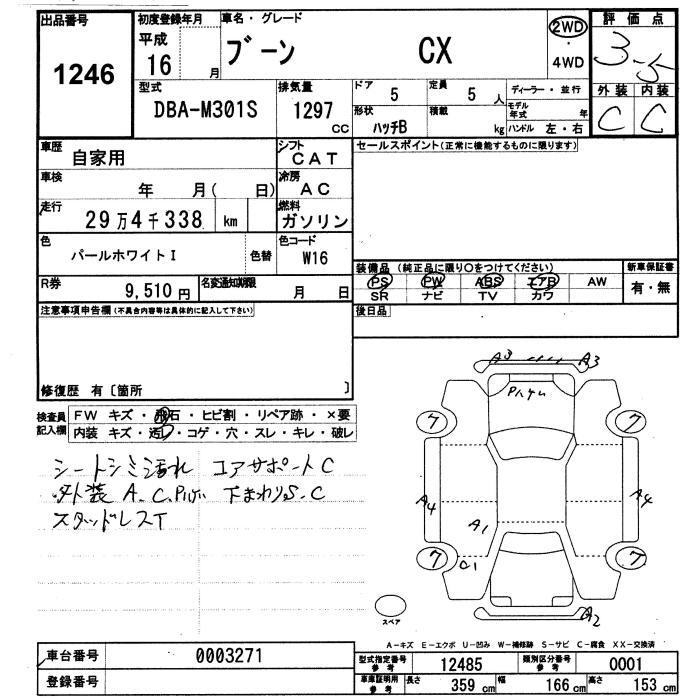 出品番号
1246
初度登録年月
平成
16 月
車名・グレード
ブーン CX
2WD
・
4WD
評価点
3.5
外装 内装
C C
型式
DBA-M301S
排気量
1297 cc
ドア 5
定員 5 人
ディーラー・並行
形状 ハッチB
積載 kg
モデル年式 年
ハンドル 左・右
車歴 自家用
シフト CAT
セールスポイント(正常に機能するものに限ります)
車検 年 月( 日)
冷房 AC
走行 29万4千338 km
燃料 ガソリン
色 パールホワイトI 色替
色コード W16
装備品 (純正品に限り○をつけてください)
新車保証書
PS PW ABS エアB AW
有・無
SR ナビ TV カワ
R券 9,510円
名変通知期限 月 日
注意事項申告欄(不具合内容等は具体的に記入して下さい)
後日品
修復歴 有〔箇所 〕
検査員記入欄
FW キズ・飛石・ヒビ割・リペア跡・×要
内装 キズ・汚レ・コゲ・穴・スレ・キレ・破レ
シートシミ汚れ コアサポートC
外装 A.C.Pハゲ 下まわりS.C
スタッドレスT
A3 A3
Pハゲ
7 7
A4 A4
A1
7 C1 7
A2
スペア
A-キズ E-エクボ U-凹み W-補修跡 S-サビ C-腐食 XX-交換済
車台番号 0003271
登録番号
型式指定番号参考 12485
類別区分番号参考 0001
車庫証明用参考 長さ 359 cm 幅 166 cm 高さ 153 cm